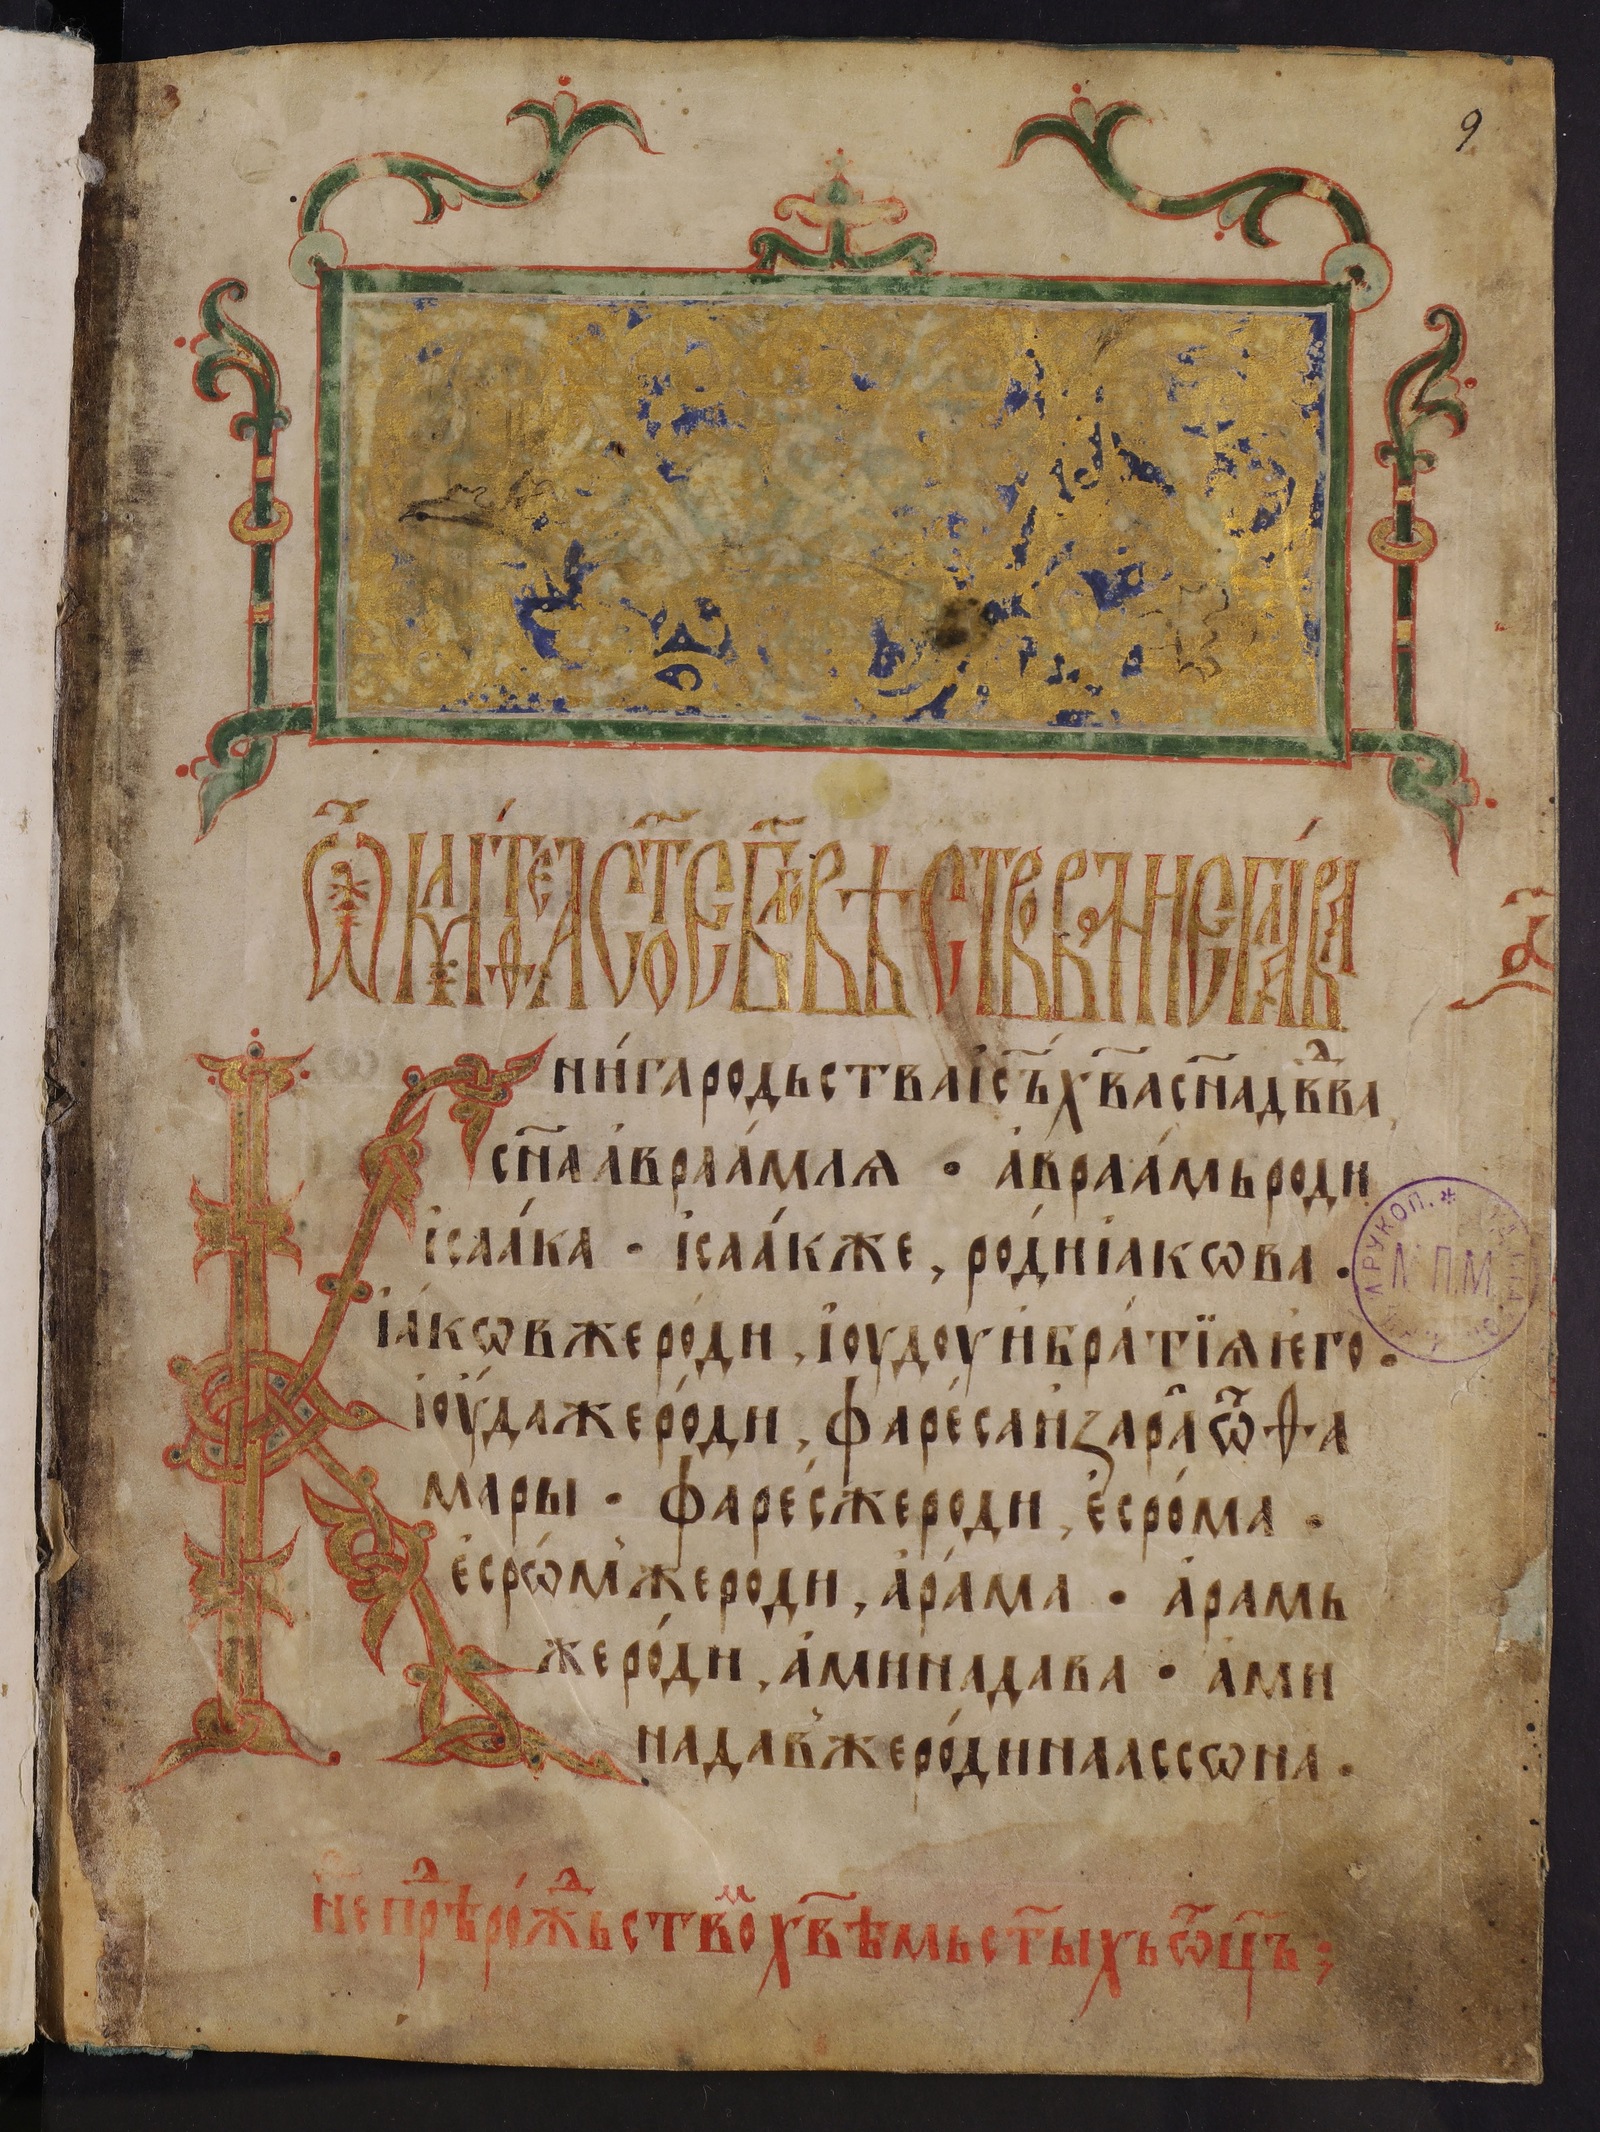 9
Ѿ маѳеа ст҃ое бл҃говѣствованіе глава
а҃
Кни́га родьства і҆с҃ъ хв҃а сн҃а дв҃два
сн҃а а҆враа́млѧ · а҆враа́мь роди
і҆саа́ка · і҆саа́к же, ро́ди і҆акѡва ·
і҆а́кѡв же ро́ди, і҆оудоу и҆ бра́тїѧ ѥ҆го ·
і҆оу́да же ро́ди, фаре́са и҆ зара̑ ѿ ѳа
мары · фаре́с же роди, е҆сро́ма ·
е҆срѡ́м же роди, а҆ра́ма · а҆рамь
же ро́ди, а҆минадава · а҆ми
надав же ро́ди наассѡна ·
не прⷣѣ ро́жⷣьствоⷨ хв҃ѣмь ст҃ыхь ѡ҃ц҃ъ ;